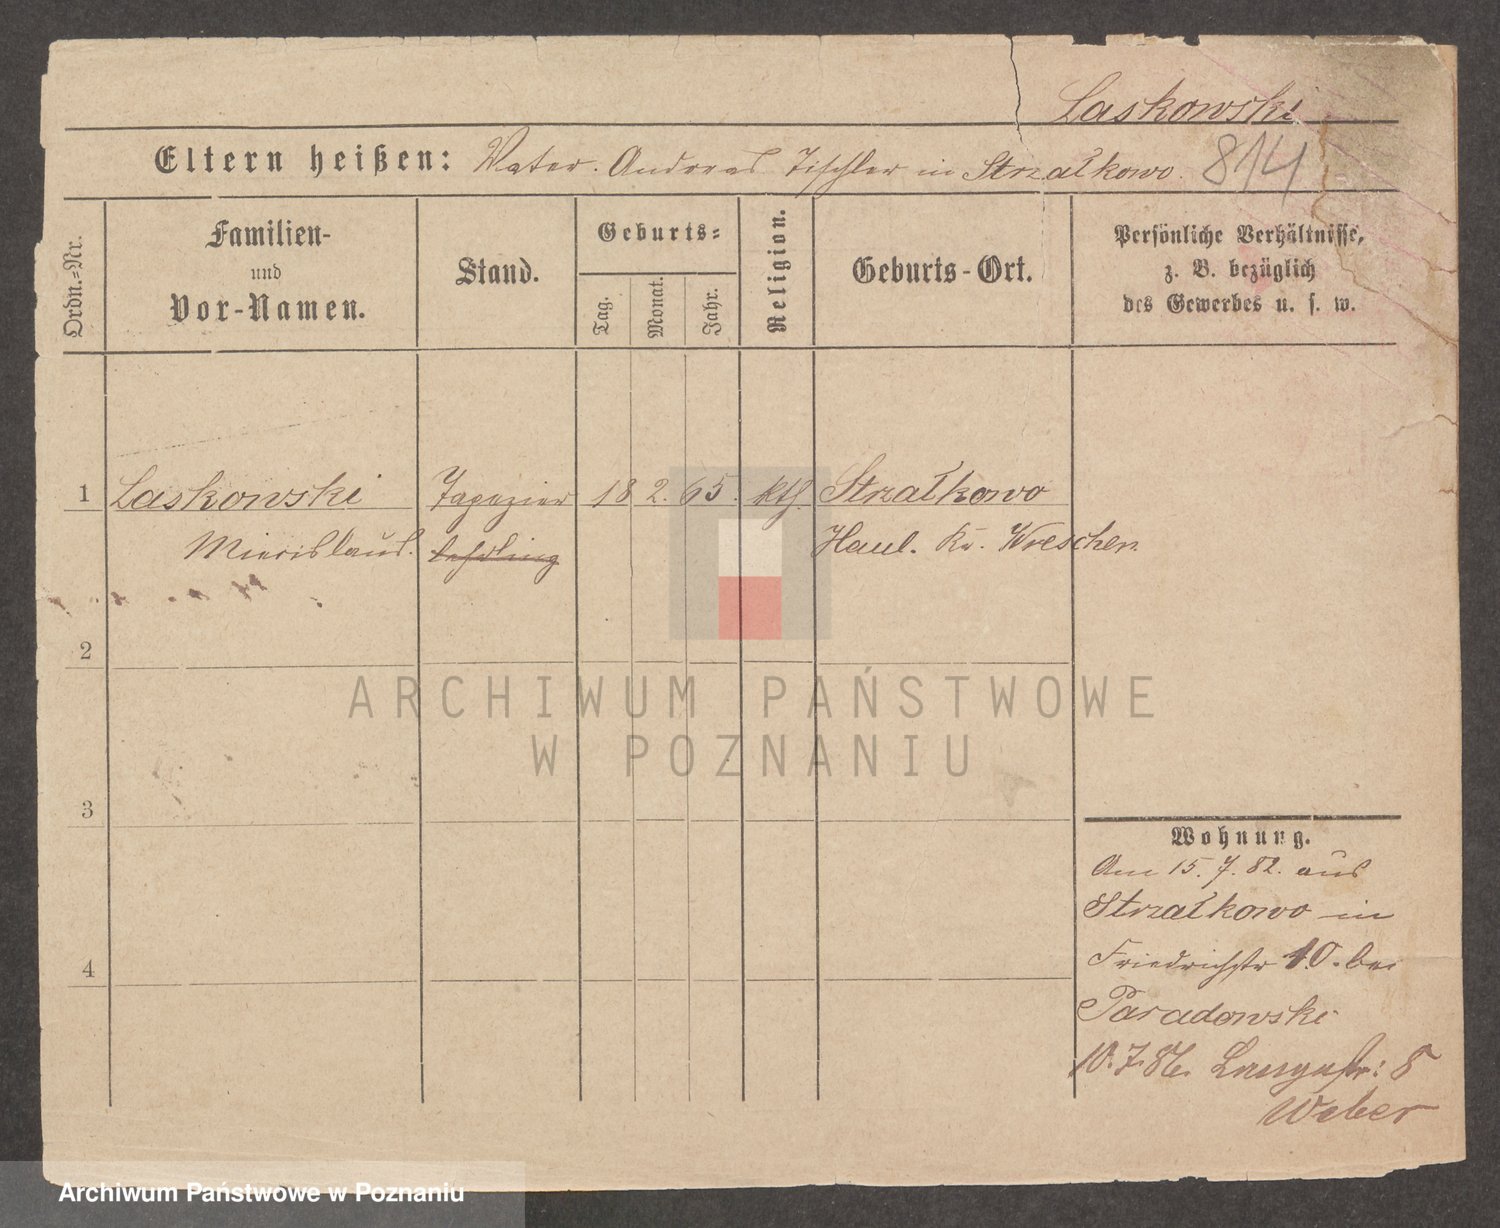 Laskowski
Eltern heißen: Vater. Andreas Tischler in Strzałkowo. 814
Ordn.-Nr.
Familien-
und
Vor-Namen.
Stand.
Geburts-
Tag.
Monat.
Jahr.
Religion.
Geburts-Ort.
Persönliche Verhältnisse,
z. B. bezüglich
des Gewerbes u. s. w.
1 Laskowski Tapezier 18 2. 65. kth. Strzałkowo
Miecislaus. lehrling Haul. Kr. Wreschen
2
3
4
ARCHIWUM PAŃSTWOWE
W POZNANIU
Wohnung.
Am 15. 7. 82. aus
Strzałkowo in
Friedrichstr 10. bei
Paradowski
10.7.86. Langestr: 8
Weber
Archiwum Państwowe w Poznaniu